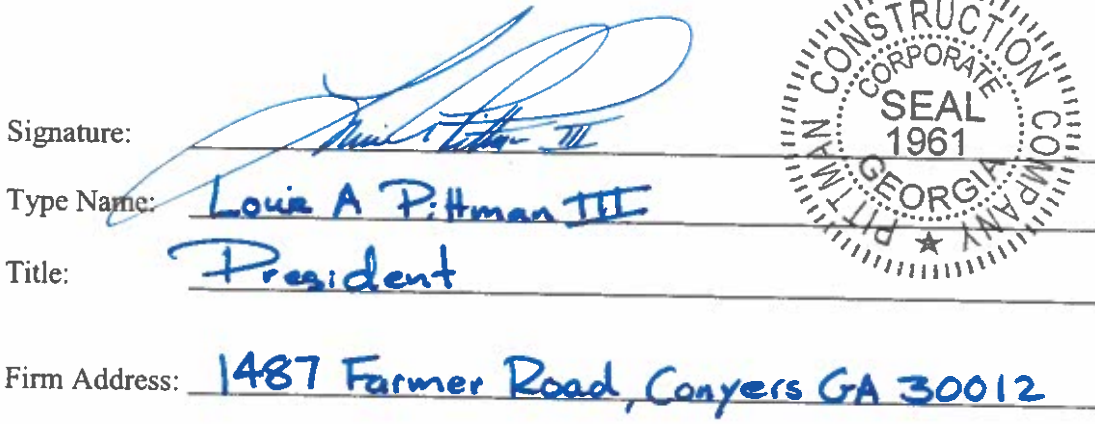 Signature:
Type Name: Louie A Pittman III
Title: President
Firm Address: 1487 Farmer Road, Conyers GA 30012
PITTMAN CONSTRUCTION COMPANY
CORPORATE
SEAL
1961
GEORGIA